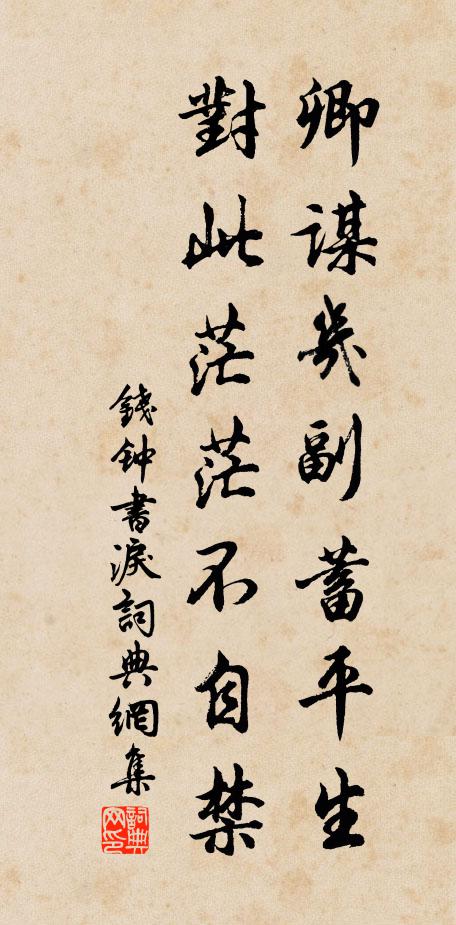 卿謀幾副蓄平生
對此茫茫不自禁
錢鍾書淚詞典網集
詞典网印